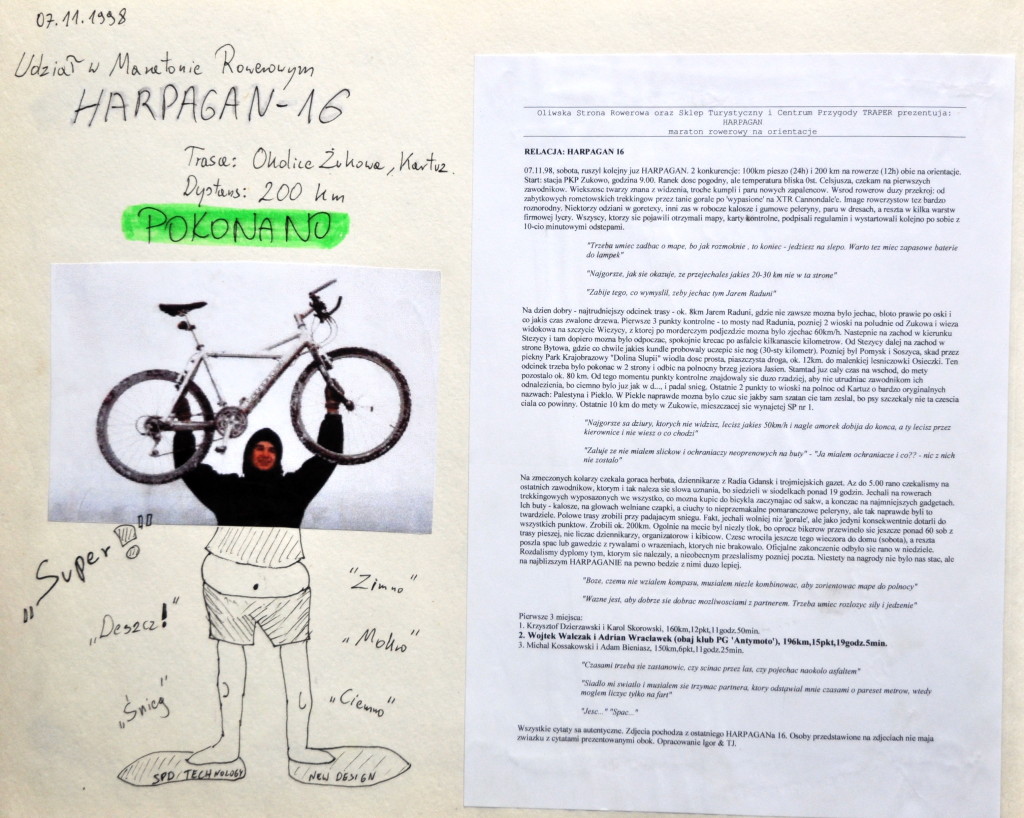 07.11.1998
Udział w Maratonie Rowerowym
HARPAGAN-16
Trasa: Okolice Żukowa, Kartuz.
Dystans: 200 km
POKONANO
„Super!"
„Deszcz!"
„Śnieg"
„Zimno"
„Mokro"
„Ciemno"
SPD TECHNOLOGY
NEW DESIGN
Oliwska Strona Rowerowa oraz Sklep Turystyczny i Centrum Przygody TRAPER prezentuja:
HARPAGAN
maraton rowerowy na orientacje
RELACJA: HARPAGAN 16
07.11.98, sobota, ruszyl kolejny juz HARPAGAN. 2 konkurencje: 100km pieszo (24h) i 200 km na rowerze (12h) obie na orientacje.
Start: stacja PKP Zukowo, godzina 9.00. Ranek dosc pogodny, ale temperatura bliska 0st. Celsjusza, czekam na pierwszych
zawodnikow. Wiekszosc twarzy znana z widzenia, troche kumpli i paru nowych zapalencow. Wsrod rowerow duzy przekroj: od
zabytkowych rometowskich trekkingow przez tanie gorale po 'wypasione' na XTR Cannondale'e. Image rowerzystow tez bardzo
roznorodny. Niektorzy odziani w goretexy, inni zas w robocze kalosze i gumowe peleryny, paru w dresach, a reszta w kilka warstw
firmowej lycry. Wszyscy, ktorzy sie pojawili otrzymali mapy, karty kontrolne, podpisali regulamin i wystartowali kolejno po sobie z
10-cio minutowymi odstepami.
"Trzeba umiec zadbac o mape, bo jak rozmoknie , to koniec - jedziesz na slepo. Warto tez miec zapasowe baterie
do lampek"
"Najgorsze, jak sie okazuje, ze przejechales jakies 20-30 km nie w ta strone"
"Zabije tego, co wymyslil, zeby jechac tym Jarem Raduni"
Na dzien dobry - najtrudniejszy odcinek trasy - ok. 8km Jarem Raduni, gdzie nie zawsze mozna bylo jechac, bloto prawie po oski i
co jakis czas zwalone drzewa. Pierwsze 3 punkty kontrolne - to mosty nad Radunia, pozniej 2 wioski na poludnie od Zukowa i wieza
widokowa na szczycie Wiezycy, z ktorej po morderczym podjezdzie mozna bylo zjechac 60km/h. Nastepnie na zachod w kierunku
Stezycy i tam dopiero mozna bylo odpoczac, spokojnie krecac po asfalcie kilkanascie kilometrow. Od Stezycy dalej na zachod w
strone Bytowa, gdzie co chwile jakies kundle probowaly uczepic sie nog (30-sty kilometr). Pozniej byl Pomysk i Soszyca, skad przez
piekny Park Krajobrazowy "Dolina Slupii" wiodla dosc prosta, piaszczysta droga, ok. 12km. do malenkiej lesniczowki Osiecki. Ten
odcinek trzeba bylo pokonac w 2 strony i odbic na polnocny brzeg jeziora Jasien. Stamtad juz caly czas na wschod, do mety
pozostalo ok. 80 km. Od tego momentu punkty kontrolne znajdowaly sie duzo rzadziej, aby nie utrudniac zawodnikom ich
odnalezienia, bo ciemno bylo juz jak w d..., i padal snieg. Ostatnie 2 punkty to wioski na polnoc od Kartuz o bardzo oryginalnych
nazwach: Palestyna i Pieklo. W Piekle naprawde mozna bylo czuc sie jakby sam szatan cie tam zeslal, bo psy szczekaly nie ta czescia
ciala co powinny. Ostatnie 10 km do mety w Zukowie, mieszczacej sie wynajetej SP nr 1.
"Najgorsze sa dziury, ktorych nie widzisz, lecisz jakies 50km/h i nagle amorek dobija do konca, a ty lecisz przez
kierownice i nie wiesz o co chodzi"
"Zaluje ze nie mialem slickow i ochraniaczy neoprenowych na buty" - "Ja mialem ochraniacze i co?? - nic z nich
nie zostalo"
Na zmeczonych kolarzy czekala goraca herbata, dziennikarze z Radia Gdansk i trojmiejskich gazet. Az do 5.00 rano czekalismy na
ostatnich zawodnikow, ktorym i tak naleza sie slowa uznania, bo siedzieli w siodelkach ponad 19 godzin. Jechali na rowerach
trekkingowych wyposazonych we wszystko, co mozna kupic do bicykla zaczynajac od sakw, a konczac na najmniejszych gadgetach.
Ich buty - kalosze, na glowach welniane czapki, a ciuchy to nieprzemakalne pomaranczowe peleryny, ale tak naprawde byli to
twardziele. Polowe trasy zrobili przy padajacym sniegu. Fakt, jechali wolniej niz 'gorale', ale jako jedyni konsekwentnie dotarli do
wszystkich punktow. Zrobili ok. 200km. Ogolnie na mecie byl niezly tlok, bo oprocz bikerow przewinelo sie jeszcze ponad 60 sob z
trasy pieszej, nie liczac dziennikarzy, organizatorow i kibicow. Czesc wrocila jeszcze tego wieczora do domu (sobota), a reszta
poszla spac lub gawedzic z rywalami o wrazeniach, ktorych nie brakowalo. Oficjalne zakonczenie odbylo sie rano w niedziele.
Rozdalismy dyplomy tym, ktorym sie nalezaly, a nieobecnym przeslalismy pozniej poczta. Niestety na nagrody nie bylo nas stac, ale
na najblizszym HARPAGANIE na pewno bedzie z nimi duzo lepiej.
"Boze, czemu nie wzialem kompasu, musialem niezle kombinowac, aby zorientowac mape do polnocy"
"Wazne jest, aby dobrze sie dobrac mozliwosciami z partnerem. Trzeba umiec rozlozyc sily i jedzenie"
Pierwsze 3 miejsca:
1. Krzysztof Dzierzawski i Karol Skorowski, 160km,12pkt,11godz.50min.
2. Wojtek Walczak i Adrian Wraclawek (obaj klub PG 'Antymoto'), 196km,15pkt,19godz.5min.
3. Michal Kossakowski i Adam Bieniasz, 150km,6pkt,11godz.25min.
"Czasami trzeba sie zastanowic, czy scinac przez las, czy pojechac naokolo asfaltem"
"Siadlo mi swiatlo i musialem sie trzymac partnera, ktory odstawial mnie czasami o pareset metrow, wtedy
moglem liczyc tylko na fart"
"Jesc..." "Spac..."
Wszystkie cytaty sa autentyczne. Zdjecia pochodza z ostatniego HARPAGANa 16. Osoby przedstawione na zdjeciach nie maja
zwiazku z cytatami prezentowanymi obok. Opracowanie Igor & TJ.